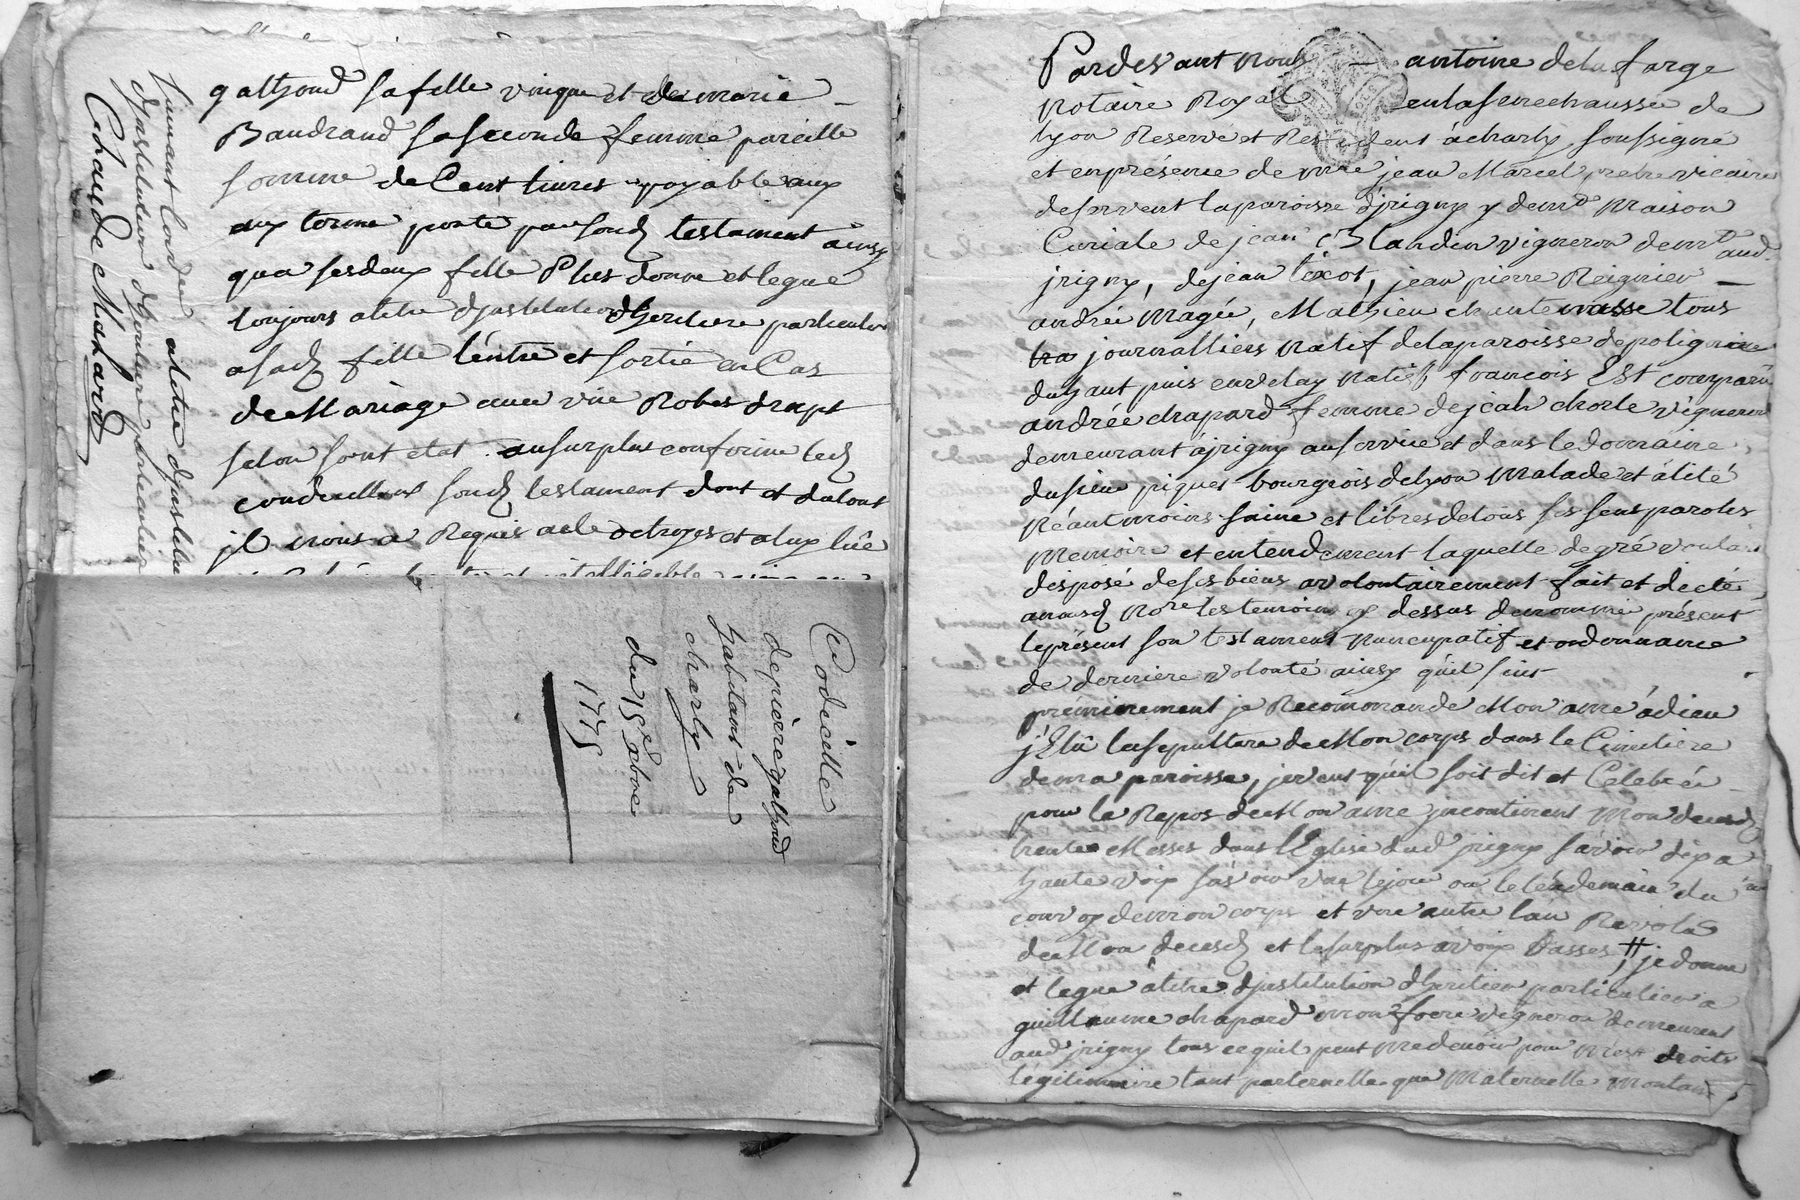 gathoud sa fille unique et de marie
Baudrand sa seconde femme pareille
somme de Cent livres payable aux
aux terme porté par sond testament ainsy
qua ses deux fille Plus donne et legue
toujours a titre djnstitution dheritiere particuliere
a sad fille l'entré et sortie en Cas
de Mariage avec une Robes drapt
selon sont etat au surplus confirme led
sond testament dont et du tout
jl nous a Requis acte octroyé et a luy lüe
a titre djnstitu
djnstitution dheritiere particuliere
Chaude Mahard
Codecille
de pierre gathoud
habitans de
charly
du 15e xbre
1775
Pardevant Nous antoine delafarge
Notaire Royal en la senechaussée de
lyon Reservé et Residant à charly soussigné
et en présence de mre jean Marcel pretre vicaire
deservent la paroisse d'jrigny y demt Maison
Curiale de jean Blandin vigneron demt aud.
jrigny, de jean texot, jean pierre Reignier
andré Magé, Mathieu chantemasse tous
tra journalliers Natif de la paroisse de polignac
du haut puis en velay Natifs françois Est comparü
andrée chapard femme de jean chorle vigneron
demeurant à jrigny au service et dans le domaine
du sieur piquet bourgeois de lyon Malade et alité
Néantmoins saine et libres de tous ses sens paroles
Memoire et entendement laquelle de gré voulant
disposé de ses biens a volontairement fait et dicté
a nousd Nore les temoins cy dessus denommé présent
le présent son testament Nuncupatif et ordonnance
de derniere volonté ainsy qu'il suit
premierement je Recommande Mon ame à dieu
j'Elû la sepulture de Mon corps dans le Cimetiere
de ma paroisse, je veut qu'il soit dit et Célebré
pour le Repos de Mon ame jncontinent Mon decesd
trente Messes dans l'Eglise dud jrigny sávoir dix a
haute voix sávoir une le jour ou le lendemain du
convoy de mon corps et une autre l'an Revolû
de Mon decesd et le surplus a voix basses, je donne
et legue à titre djnstitution dheritier particulier a
guillaume chapard mon frere vigneron demeurant
aud jrigny tous ce quil peut me devoir pour Mes droits
légitimaire tant paternelle que Maternelle Montant